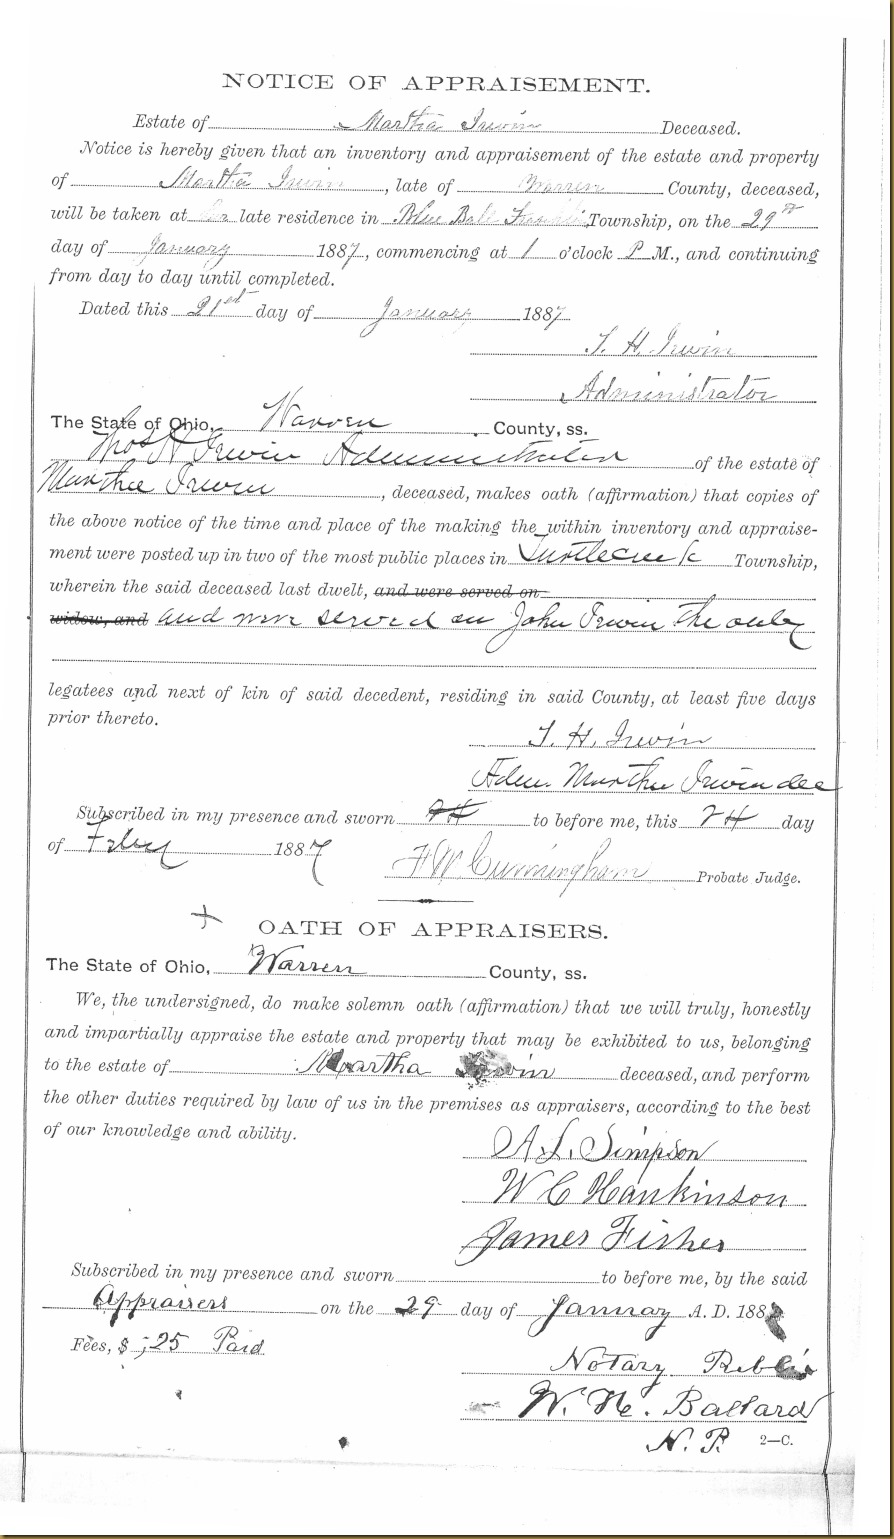 NOTICE OF APPRAISEMENT.
Estate of Martha Irwin Deceased.
Notice is hereby given that an inventory and appraisement of the estate and property
of Martha Irwin, late of Warren County, deceased,
will be taken at late residence in Blue Ball Franklin Township, on the 29th
day of January 1887, commencing at 1 o'clock P M., and continuing
from day to day until completed.
Dated this 21st day of January 1887
T. H. Irwin
Administrator
The State of Ohio, Warren County, ss.
Thos H Irwin Administrator of the estate of
Martha Irwin, deceased, makes oath (affirmation) that copies of
the above notice of the time and place of the making the within inventory and appraise-
ment were posted up in two of the most public places in Turtlecreek Township,
wherein the said deceased last dwelt, and were served on
widow, and and were served on John Irwin the only
legatees and next of kin of said decedent, residing in said County, at least five days
prior thereto.
T. H. Irwin
Adm. Martha Irwin dec
Subscribed in my presence and sworn to before me, this day
of Feby 1887 F W Cunningham Probate Judge.
OATH OF APPRAISERS.
The State of Ohio, Warren County, ss.
We, the undersigned, do make solemn oath (affirmation) that we will truly, honestly
and impartially appraise the estate and property that may be exhibited to us, belonging
to the estate of Martha Irwin deceased, and perform
the other duties required by law of us in the premises as appraisers, according to the best
of our knowledge and ability.
A. L. Simpson
W C Hankinson
James Fisher
Subscribed in my presence and sworn to before me, by the said
Appraisers on the 29 day of January A. D. 188
Fees, $ ,25 Paid
Notary Public
W. H. Ballard
N. P. 2—C.